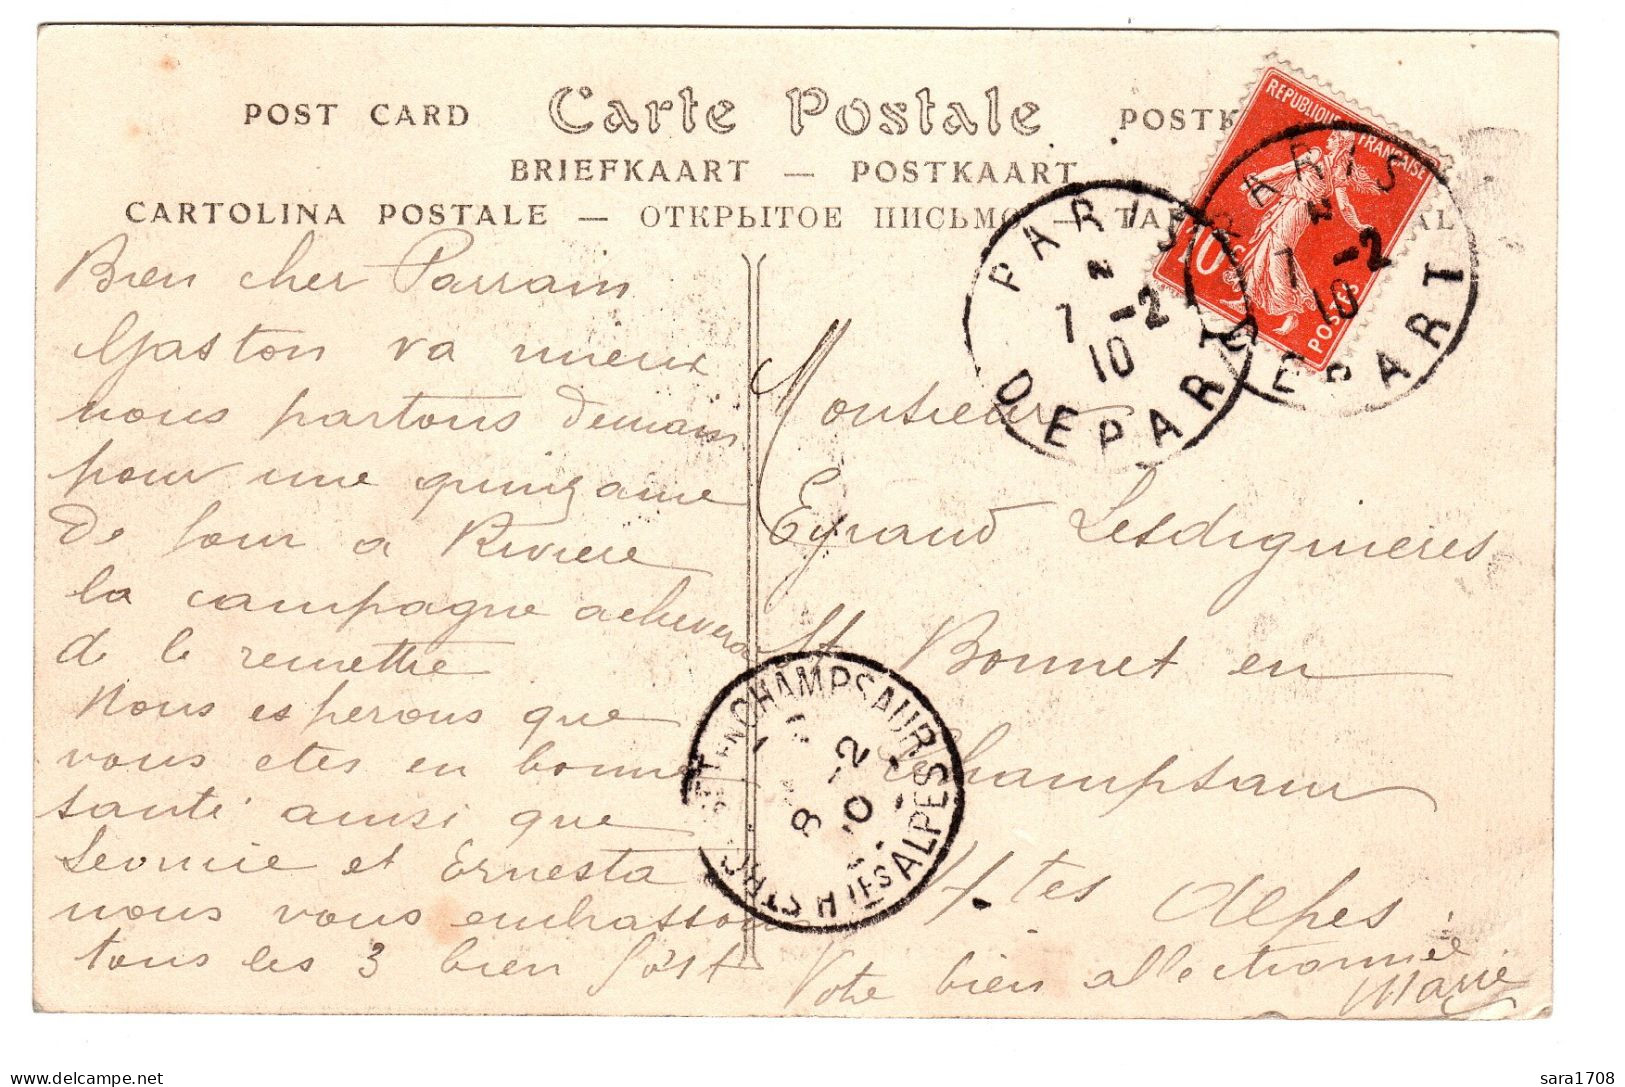 POST CARD Carte Postale POSTK
BRIEFKAART — POSTKAART
CARTOLINA POSTALE — ОТКРЫТОЕ ПИСЬМО — TA AL
REPUBLIQUE FRANÇAISE
10c
POSTES
PARIS
7 -2
10
DEPART
PARIS
7 -2
10
DEPART
Bien cher Parrain
Gaston va mieux
nous partons demain
pour une quinzaine
de jour a Riviere
la campagne achevera
de le remettre
Nous esperons que
vous etes en bonne
santé ainsi que
Leonie et Ernesta
nous vous embrassons
tous les 3 bien fort
Monsieur
Eyraud Lesdiguieres
St Bonnet en
Champsaur
Htes Alpes
Votre bien affectionnée
Marie
ST EN CHAMPSAUR
8 -2
10
HTES ALPES
sara1708
delcampe.net